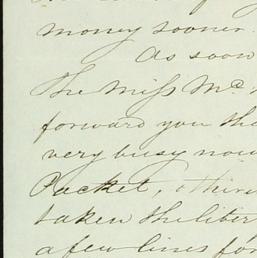 money sooner.
As soon
The Miss Mc
forward you the
very busy now
Packet,
taken the liber
a few lines for